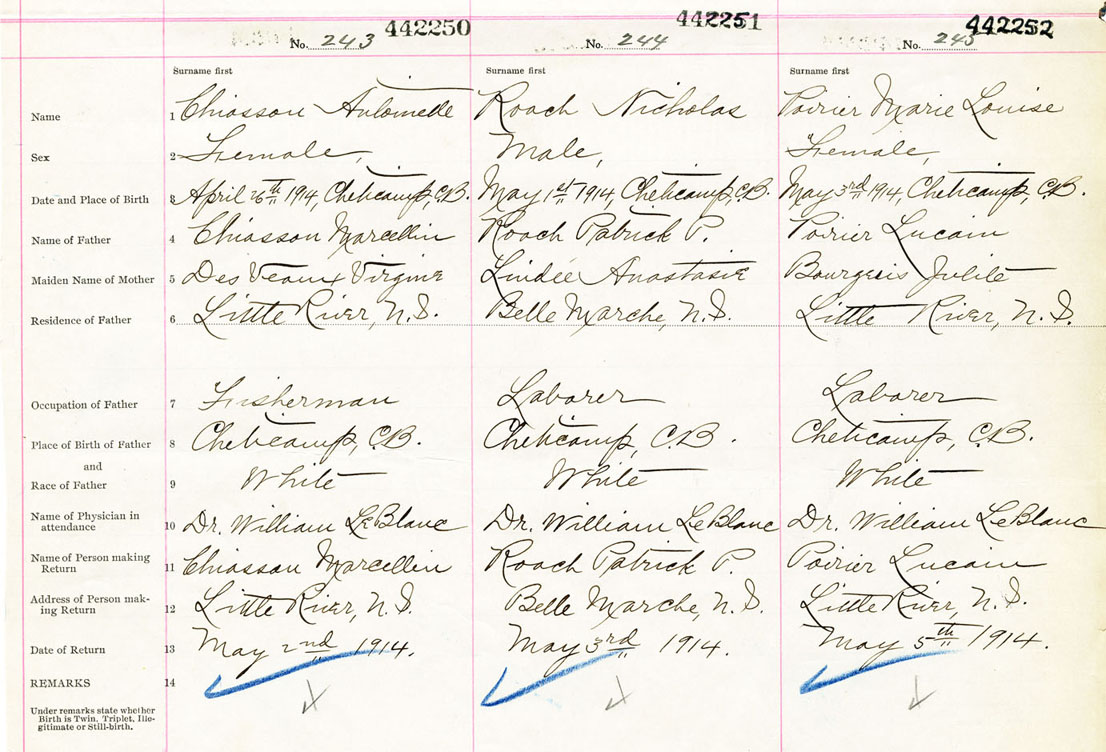 442250 442251 442252
No. 243 No. 244 No. 245
Surname first Surname first Surname first
Name 1 Chiasson Antoinette Roach Nicholas Poirier Marie Louise
Sex 2 Female, Male, Female,
Date and Place of Birth 3 April 26th 1914, Cheticamp, C.B. May 1st 1914, Cheticamp, C.B. May 3rd 1914, Cheticamp, C.B.
Name of Father 4 Chiasson Marcellin Roach Patrick P. Poirier Lucain
Maiden Name of Mother 5 DesVeaux Virginie Anastasie Bourgeois Julite
Residence of Father 6 Little River, N.S. Belle Marche, N.S. Little River, N.S.
Occupation of Father 7 Fisherman Laborer Laborer
Place of Birth of Father 8 Cheticamp, C.B. Cheticamp, C.B. Cheticamp, C.B.
and
Race of Father 9 White White White
Name of Physician in
attendance 10 Dr. William LeBlanc Dr. William LeBlanc Dr. William LeBlanc
Name of Person making
Return 11 Chiasson Marcellin Roach Patrick P. Poirier Lucain
Address of Person mak-
ing Return 12 Little River, N.S. Belle Marche, N.S. Little River, N.S.
Date of Return 13 May 2nd 1914. May 3rd 1914. May 5th 1914.
REMARKS 14
Under remarks state whether
Birth is Twin, Triplet, Ille-
gitimate or Still-birth.